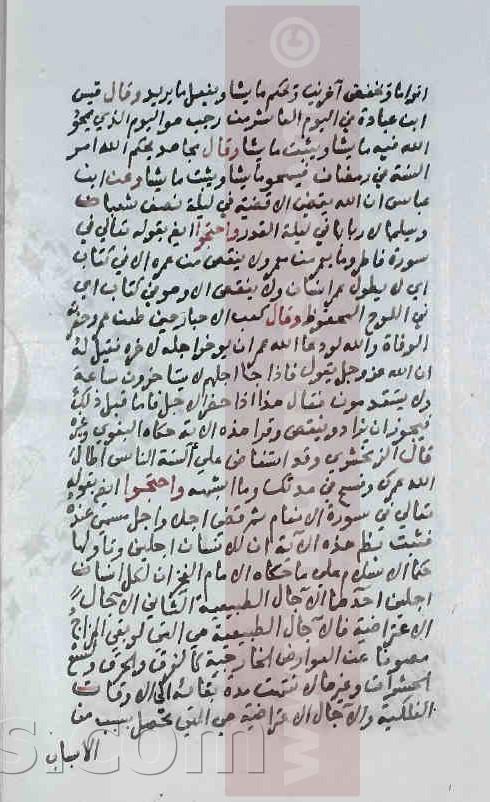 اقواما وتخفض آخرين وتحكم ما يشا ويفعل ما يريد وقال قيس
ابن عبادة في اليوم العاشر من رجب هو اليوم الذي يمحو
الله فيه ما يشا ويثبت ما يشا وقال مجاهد يحكم الله امر
السنة في رمضان فيمحو ما يشا ويثبت ما يشا وعن ابن
عباس ان الله يقضي الاقضية في ليلة نصف شعبان
ويسلمها لاربابها في ليلة القدر واحتجوا ايض بقوله تعالي في
سورة فاطر وما يعمر من معمر ولا ينقص من عمره الا في كتاب
اي لا يطول عمر انسان ولا ينقص الا وهو في كتاب اي
في اللوح المحفوظ وقال كعب الاحبار حين طعن عمر وحضرته
الوفاة والله لو دعا الله عمر ان يوخر اجله لاخره فقيل له
ان الله عز وجل يقول فاذا جا اجلهم لا يستاخرون ساعة
ولا يستقدمون فقال هذا اذا حضر الاجل فاما قبل ذلك
فيجوز ان يزاد وينقص وقرا هذه الاية حكاه البغوي
قال الزمخشري وقد استفاض علي السنة الناس اطال
الله عمرك وفسح في مدتك وما اشبهه واحتجوا ايض بقوله
تعالي في سورة الانعام ثم قضي اجلا واجل مسمي عنده
فثبت بنظم هذه الاية ان للانسان اجلين وتاولها
حكما الاسلام علي ما حكاه الامام الفخر ان لكل انسان
اجلين احدهما الاجال الطبيعية الثاني الاجال
الاعتراضية فالاجال الطبيعية هي التي لو بقي المزاج
مصونا عن العوارض الخارجية كالغرق والحرق ولسع
الحشرات وغيرها لانتهت مدة بقائه الي الاوقات
الفلكية والاجال الاعتراضية هي التي تحصل بسبب من
الاسباب
s.com